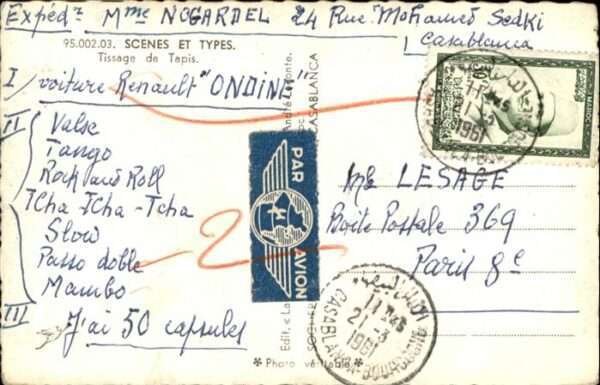 Expéd.r Mme NOGARDEL 24 Rue Mohamed Sedki
Casablanca
95.002.03. SCENES ET TYPES.
Tissage de Tapis.
I voiture Renault "ONDINE"
II
Valse
Tango
Rock and Roll
Tcha-Tcha-Tcha
Slow
Passo doble
Mambo
III J'ai 50 capsules
PAR AVION
Edit. « La
CASABLANCA
* Photo véritable *
30
MAROC
1961
LESAGE
Boite Postale 369
Paris 8e
11 H45
21-3
1961
CASABLANCA-BOURGOGNE